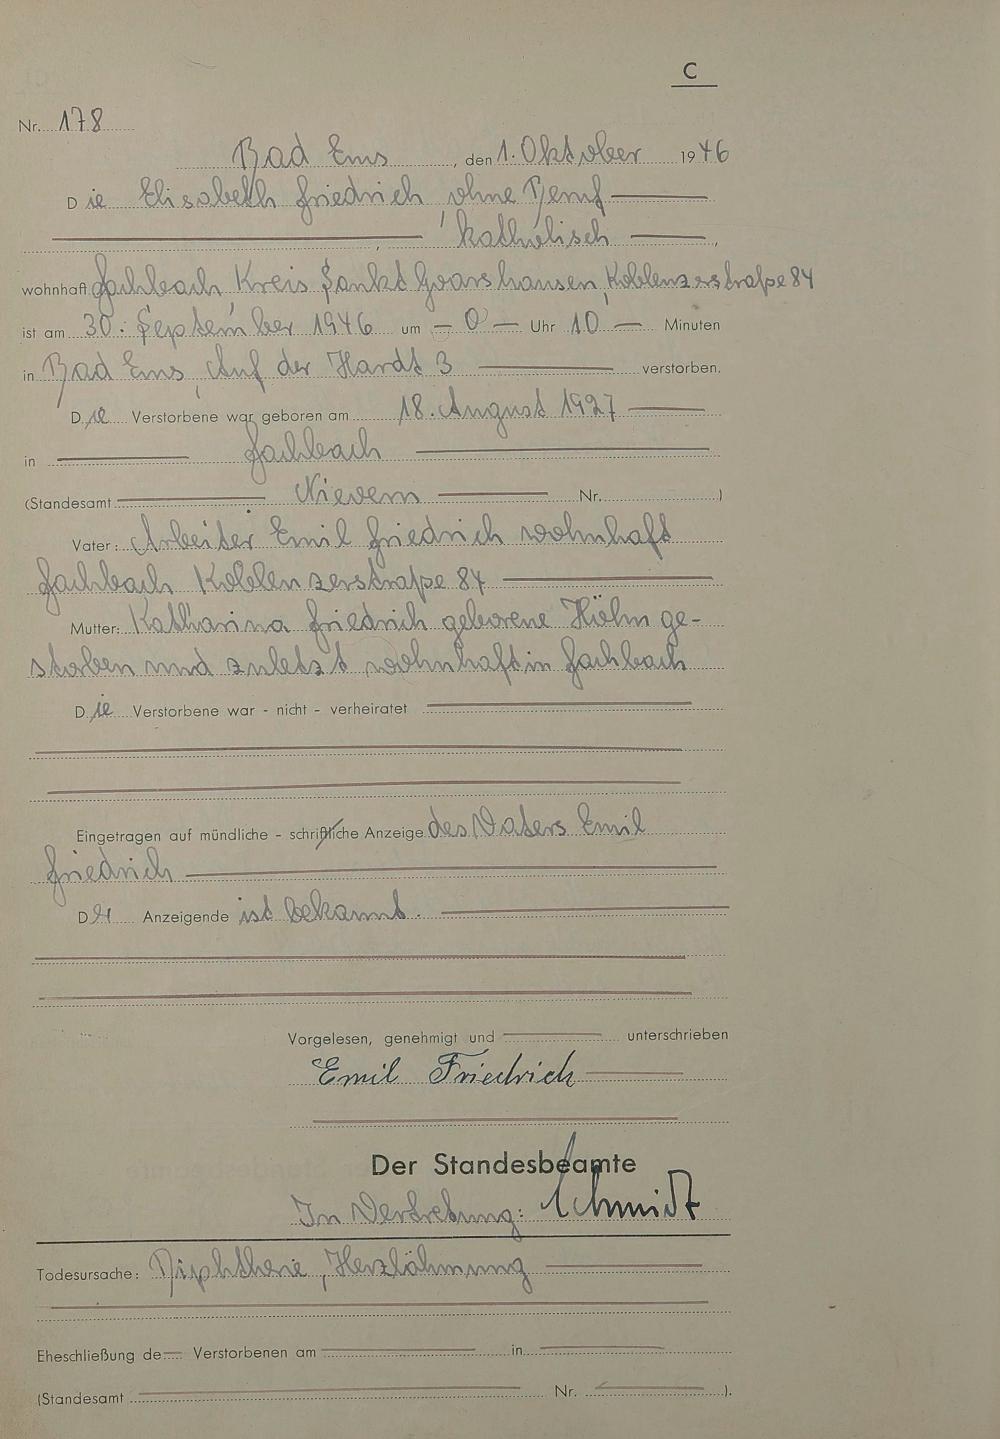 C
Nr. 178
Bad Ems, den 1. Oktober 1946
Die Elisabeth Friedrich, ohne Beruf
, katholisch,
wohnhaft Fachbach, Kreis Sankt Goarshausen, Koblenzerstraße 84
ist am 30. September 1946 um – 0 – Uhr 10 – Minuten
in Bad Ems, Auf der Hardt 3 verstorben.
Die Verstorbene war geboren am 18. August 1927
in Fachbach
(Standesamt Nievern Nr. )
Vater: Arbeiter Emil Friedrich wohnhaft
Fachbach Koblenzerstraße 84
Mutter: Katharina Friedrich geborene Höhn ge-
storben und zuletzt wohnhaft in Fachbach
Die Verstorbene war - nicht - verheiratet
Eingetragen auf mündliche - schriftliche Anzeige des Vaters Emil
Friedrich
Der Anzeigende ist bekannt.
Vorgelesen, genehmigt und unterschrieben
Emil Friedrich
Der Standesbeamte
In Vertretung: Schmidt
Todesursache: Diphtherie, Herzlähmung
Eheschließung de Verstorbenen am in
(Standesamt Nr. ).